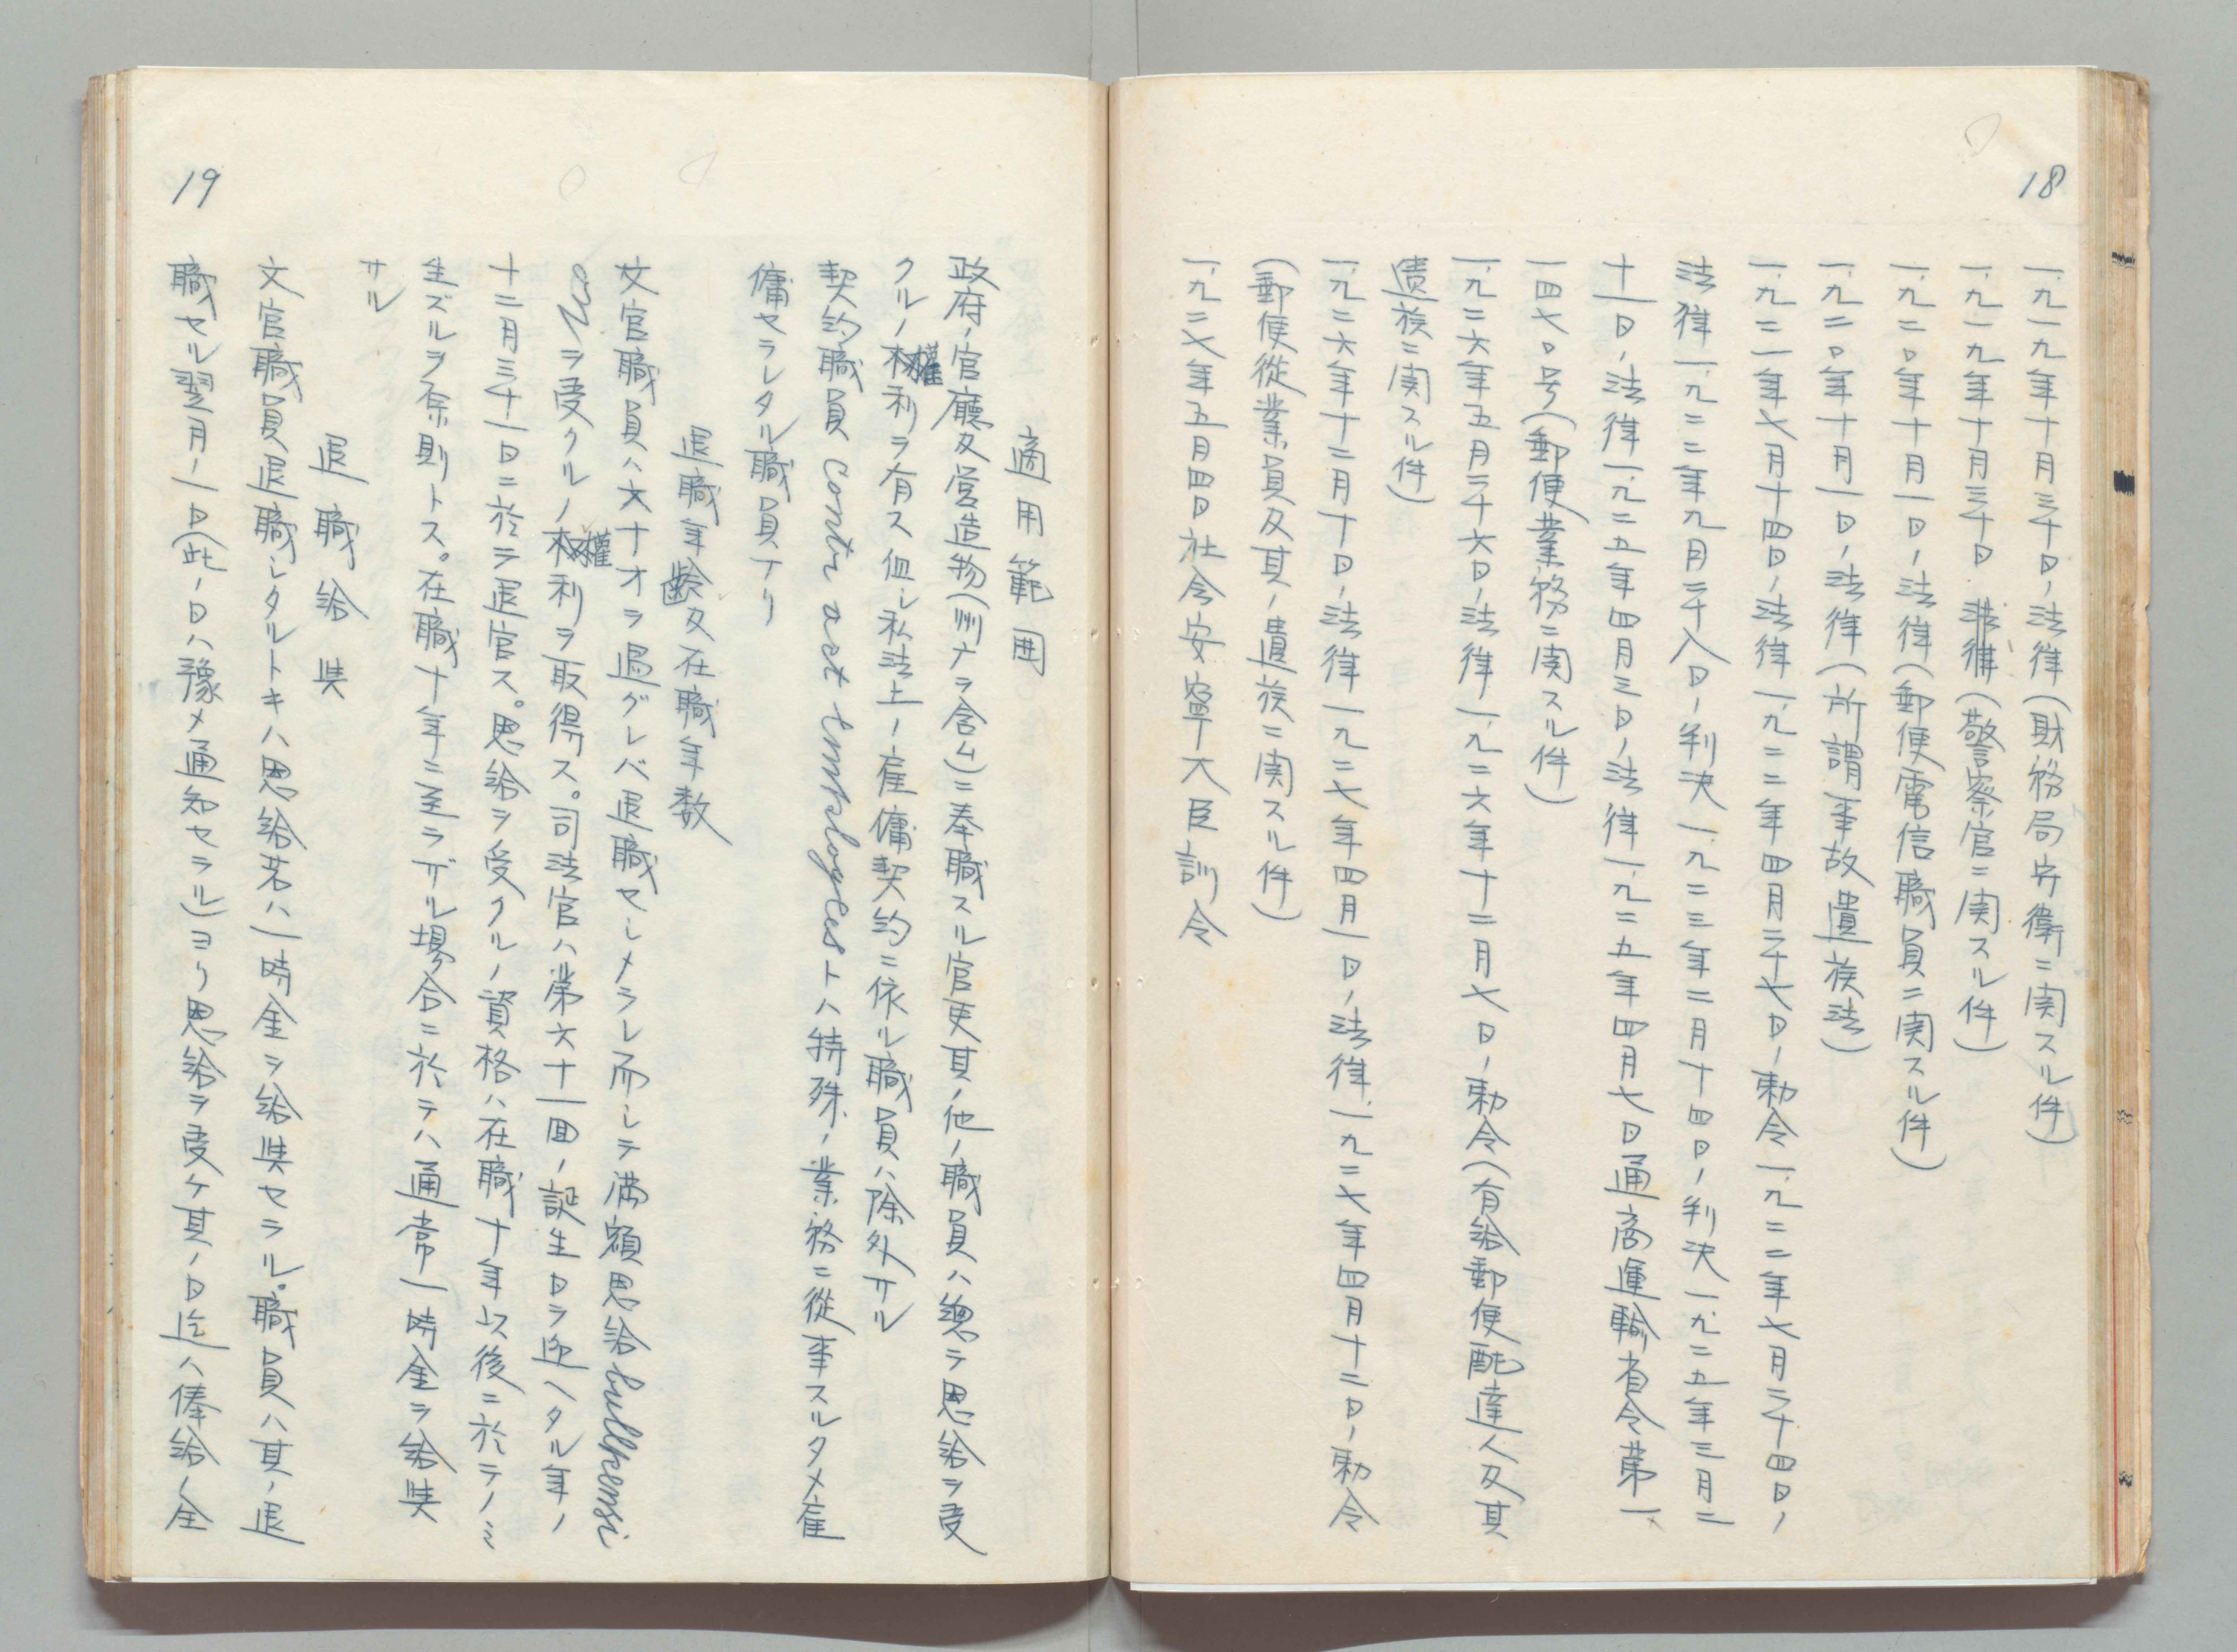 18
一、九一九年十月三十日ノ法律(財務局守衛ニ関スル件)
一、九一九年十月三十日 法律(警察官ニ関スル件)
一、九二〇年十月一日ノ法律(郵便電信職員ニ関スル件)
一、九二〇年十月一日ノ法律(所謂事故遺族法)
一、九二一年七月十四日ノ法律一、九二二年四月二十七日ノ勅令一、九二二年七月二十四日ノ
法律一、九二二年九月二十八日ノ判決一、九二三年二月十四日ノ判決一、九二五年三月二
十一日ノ法律一、九二五年四月三日ノ法律一、九二五年四月七日通商運輸省令第一、
一四七〇号(郵便業務ニ関スル件)
一、九二六年五月二十六日ノ法律一、九二六年十二月七日ノ勅令(有給郵便配達人及其
遺族ニ関スル件)
一、九二六年十二月十日ノ法律一九二七年四月一日ノ法律、一九二七年四月十二日ノ勅令
(郵便従業員及其ノ遺族ニ関スル件)
一、九二七年五月四日社会安寧大臣訓令
適用範囲
政府ノ官廳及営造物(州ナラ含ム)ニ奉職スル官吏其ノ他ノ職員ハ總テ恩給ヲ受
クルノ權利ヲ有ス但シ私法上ノ雇傭契約ニ依ル職員ハ除外サル
契約職員 Contr act employees トハ特殊ノ業務ニ從事スルタメ雇
傭セラレタル職員ナリ
退職年齢及在職年数
文官職員ハ六十才ヲ過グレバ退職セシメラレ而シテ満額恩給 fullpensi
on ヲ受クルノ權利ヲ取得ス。司法官ハ第六十一回ノ誕生日ヲ迎ヘタル年ノ
十二月三十一日ニ於テ退官ス。恩給ヲ受クルノ資格ハ在職十年以後ニ於テノミ
生ズルヲ原則トス。在職十年ニ至ラザル場合ニ於テハ通常一時金ヲ給與
サル
退職給與
文官職員退職シタルトキハ恩給若ハ一時金ヲ給與セラル。職員ハ其ノ退
職セル翌月ノ一日(此ノ日ハ豫メ通知セラル)ヨリ恩給ヲ受ケ其ノ日迄ハ俸給ノ全
19